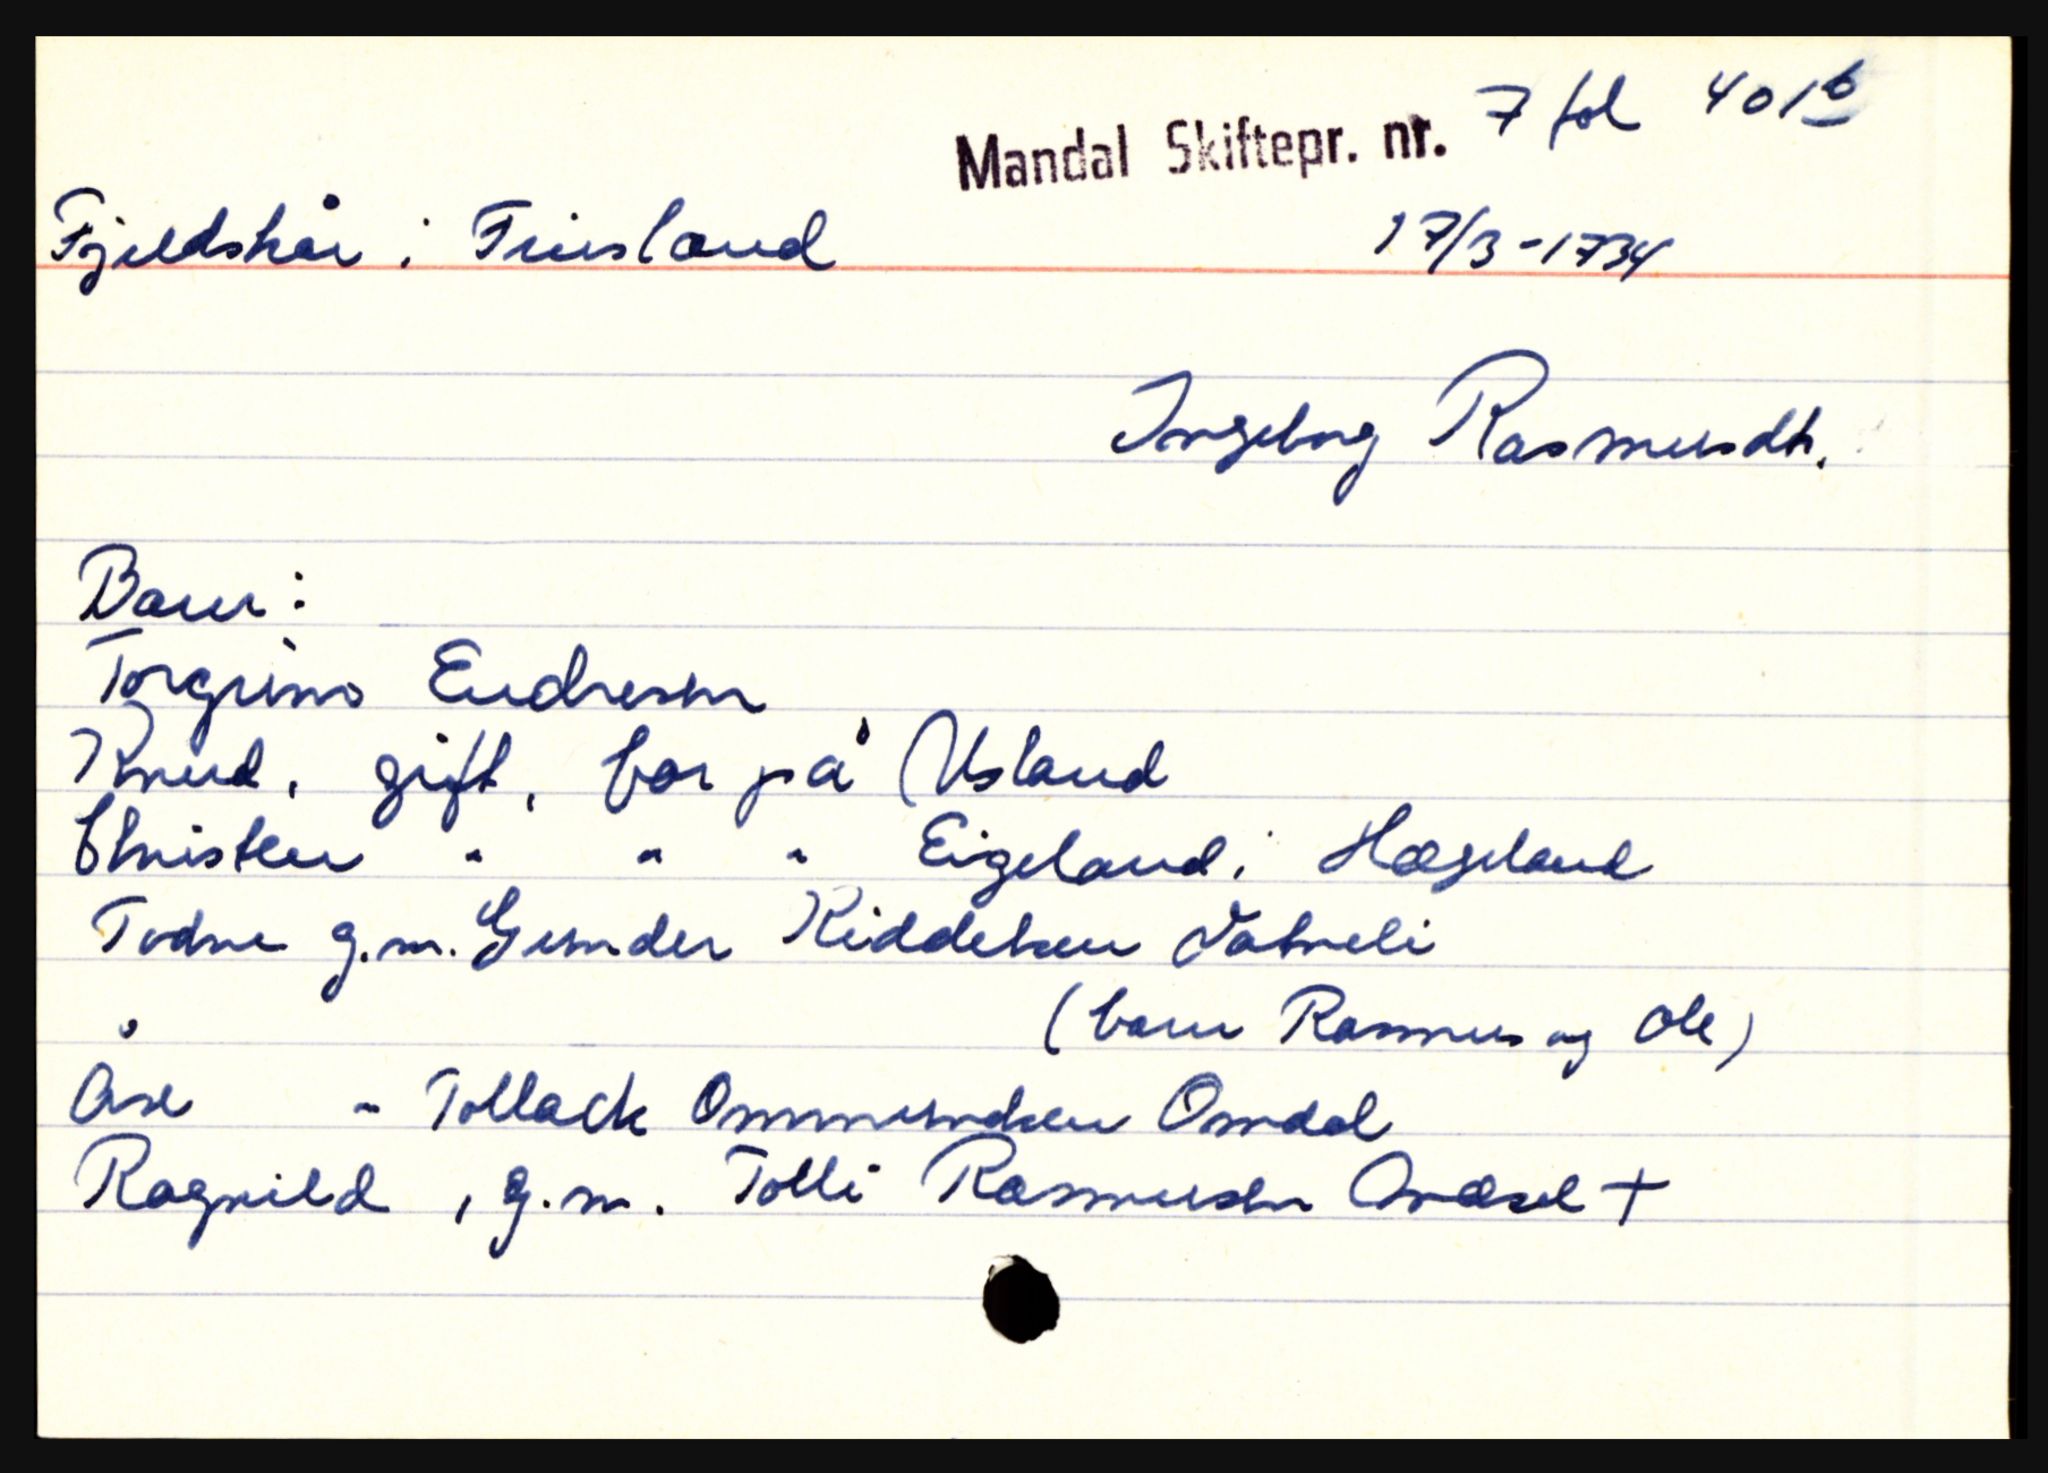 Mandal Skiftepr. nr. 7 fol 401b
Fjeldskår i Finsland 17/3-1734
Ingeborg Rasmusdt.
Barn:
Torgrims Endresen
Knud, gift, bor på Usland
Christen " " " Eigeland i Hægeland
Todne g.m. Gunder Kiddelsen Vatneli
(barn Rasmus og Ole)
Åse " Tollack Ommundsen Omdal
Ragnild, g.m. Tolli Rasmusen +